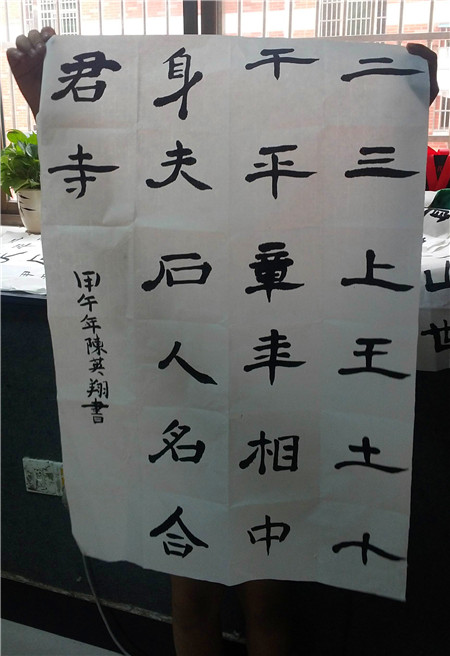 二三上王土十
干平章年相中
身夫石人名合
君寺
甲午年陳英翔書
山
世